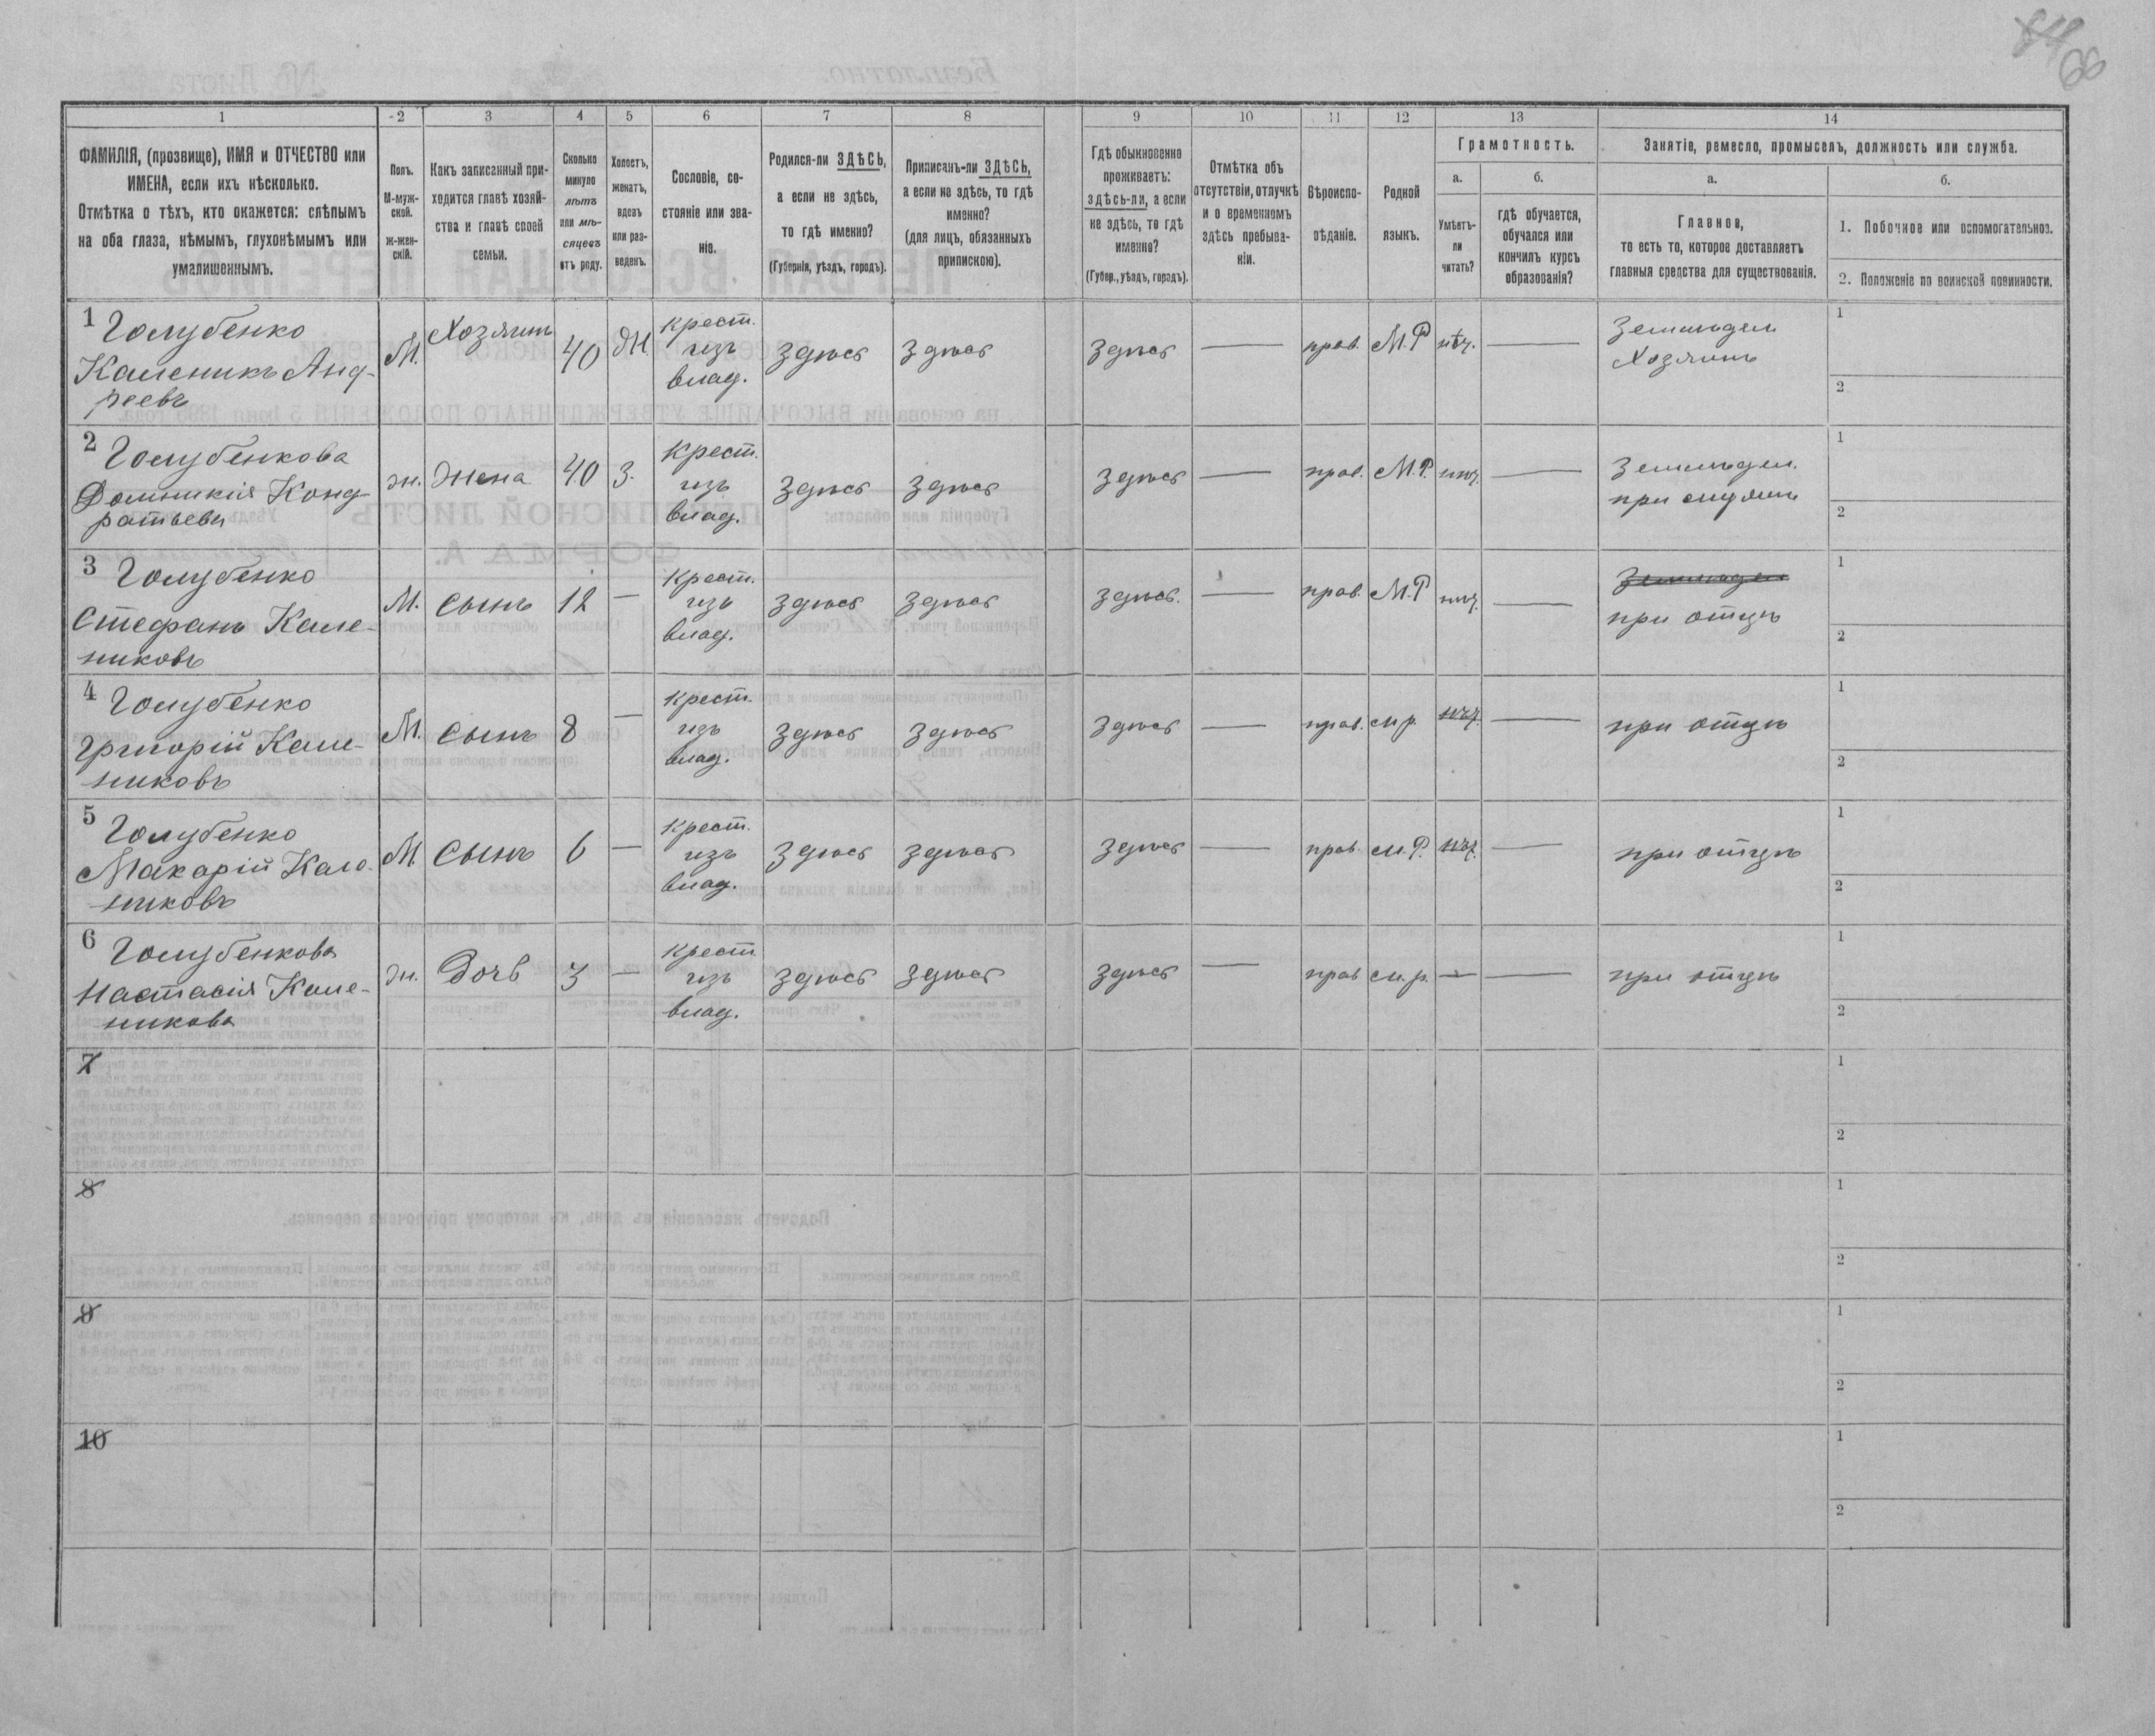 68
1 2 3 4 5 6 7 8 9 10 11 12 13 14
ФАМИЛІЯ, (прозвище), ИМЯ и ОТЧЕСТВО или
ИМЕНА, если ихъ нѣсколько.
Отмѣтка о тѣхъ, кто окажется: слѣпымъ
на оба глаза, нѣмымъ, глухонѣмымъ или
умалишеннымъ.
Полъ.
М-муж-
ской.
ж-жен-
скій.
Какъ записанный при-
ходится главѣ хозяй-
ства и главѣ своей
семьи.
Сколько
минуло
лѣтъ
или мѣ-
сяцевъ
отъ роду.
Холостъ,
женатъ,
вдовъ
или раз-
веденъ.
Сословіе, со-
стояніе или зва-
ніе.
Родился-ли ЗДѢСЬ,
а если не здѣсь,
то гдѣ именно?
(Губернія, уѣздъ, городъ).
Приписанъ-ли ЗДѢСЬ,
а если не здѣсь, то гдѣ
именно?
(для лицъ, обязанныхъ
припискою).
Гдѣ обыкновенно
проживаетъ:
здѣсь-ли, а если
не здѣсь, то гдѣ
именно?
(Губер., уѣздъ, городъ).
Отмѣтка объ
отсутствіи, отлучкѣ
и о временномъ
здѣсь пребыва-
ніи.
Вѣроиспо-
вѣданіе.
Родной
языкъ.
Грамотность.
а.
Умѣетъ-
ли
читать?
б.
гдѣ обучается,
обучался или
кончилъ курсъ
образованія?
Занятіе, ремесло, промыселъ, должность или служба.
а.
Главное,
то есть то, которое доставляетъ
главныя средства для существованія.
б.
1. Побочное или вспомогательное.
2. Положеніе по воинской повинности.
1 Голубенко
Каленикъ Анд-
реевъ
М.
Хозяинъ
40
ж
крест.
изъ
влад.
здѣсь
здѣсь
здѣсь
—
прав.
М.Р
нѣч.
—
Земльдел
Хозяинъ
1
2
2 Голубенкова
Домникія Конд-
ратьева
ж.
жена
40
з.
крест.
изъ
влад.
здѣсь
здѣсь
здѣсь
—
прав.
М.Р.
—
Земльдел.
при мужи
1
2
3 Голубенко
Стефанъ Кале-
никовъ
М.
сынъ
12
—
крест.
изъ
влад.
здѣсь
здѣсь
здѣсь.
—
прав.
М.Р
—
при отцѣ
1
2
4 Голубенко
Григорій Кале-
никовъ
М.
сынъ
8
—
крест.
изъ
влад.
здѣсь
здѣсь
здѣсь
—
прав.
м.р.
—
при отцѣ
1
2
5 Голубенко
Макарій Кале-
никовъ
М.
сынъ
6
—
крест.
изъ
влад.
здѣсь
здѣсь
здѣсь
—
прав.
м.Р.
—
при отцѣ
1
2
6 Голубенкова
Настасія Кале-
никова
ж.
дочь
3
—
крест
изъ
влад.
здѣсь
здѣсь
здѣсь
—
прав
м.р.
—
—
при отцѣ
1
2
7
1
2
8
1
2
9
1
2
10
1
2